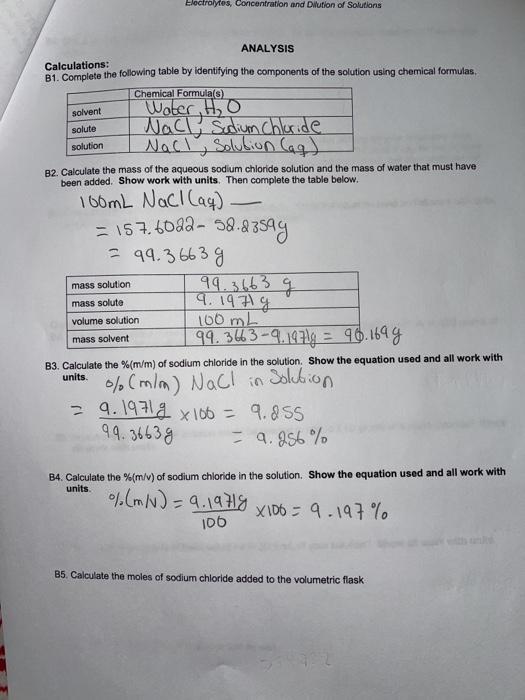 Electrolytes, Concentration and Dilution of Solutions
ANALYSIS
Calculations:
B1. Complete the following table by identifying the components of the solution using chemical formulas.
Chemical Formula(s)
solvent Water, H2O
solute NaCl, Sodium Chloride
solution NaCl, Solution (aq)
B2. Calculate the mass of the aqueous sodium chloride solution and the mass of water that must have
been added. Show work with units. Then complete the table below.
100mL NaCl (aq) —
= 157.6022 - 58.2359g
= 99.3663 g
mass solution 99.3663 g
mass solute 9.1971 g
volume solution 100 mL
mass solvent 99.3663-9.1971g = 90.169g
B3. Calculate the %(m/m) of sodium chloride in the solution. Show the equation used and all work with
units. % (m/m) NaCl in Solution
= 9.1971g x100 = 9.255
99.3663g = 9.256 %
B4. Calculate the %(m/v) of sodium chloride in the solution. Show the equation used and all work with
units. % (m/v) = 9.1971g x100 = 9.197 %
100
B5. Calculate the moles of sodium chloride added to the volumetric flask